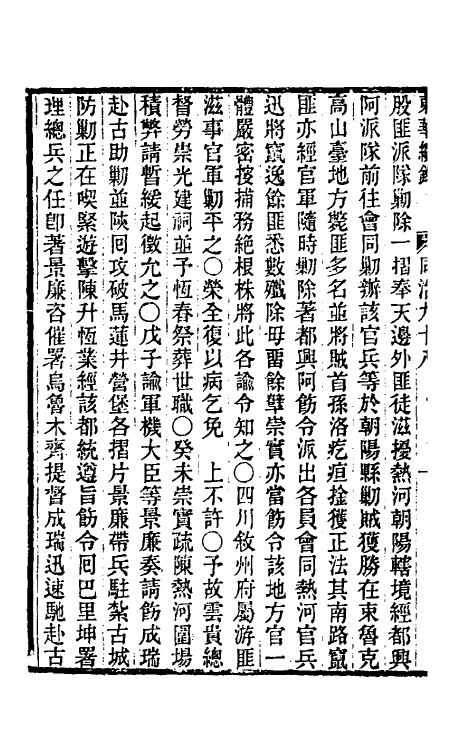 東華續錄 同治九十八 一
股匪派隊勦除一摺奉天邊外匪徒滋擾熱河朝陽轄境經都興
阿派隊前往會同勦辦該官兵等於朝陽縣勦賊獲勝在束魯克
高山臺地方斃匪多名並將賊首孫洛疙疸擒獲正法其南路竄
匪亦經官軍隨時勦除著都興阿飭令派出各員會同熱河官兵
迅將竄逸餘匪悉數殲除毋畱餘孽崇實亦當飭令該地方官一
體嚴密按捕務絕根株將此各諭令知之〇四川敘州府屬游匪
滋事官軍勦平之〇榮全復以病乞免 上不許〇予故雲貴總
督勞崇光建祠並予恆春祭葬世職〇癸未崇實疏陳熱河圍場
積弊請暫緩起徵允之〇戊子諭軍機大臣等景廉奏請飭成瑞
赴古助勦並陝囘攻破馬蓮井營堡各摺片景廉帶兵駐紮古城
防勦正在喫緊遊擊陳升恆業經該都統遵旨飭令囘巴里坤署
理總兵之任卽著景廉咨催署烏魯木齊提督成瑞迅速馳赴古